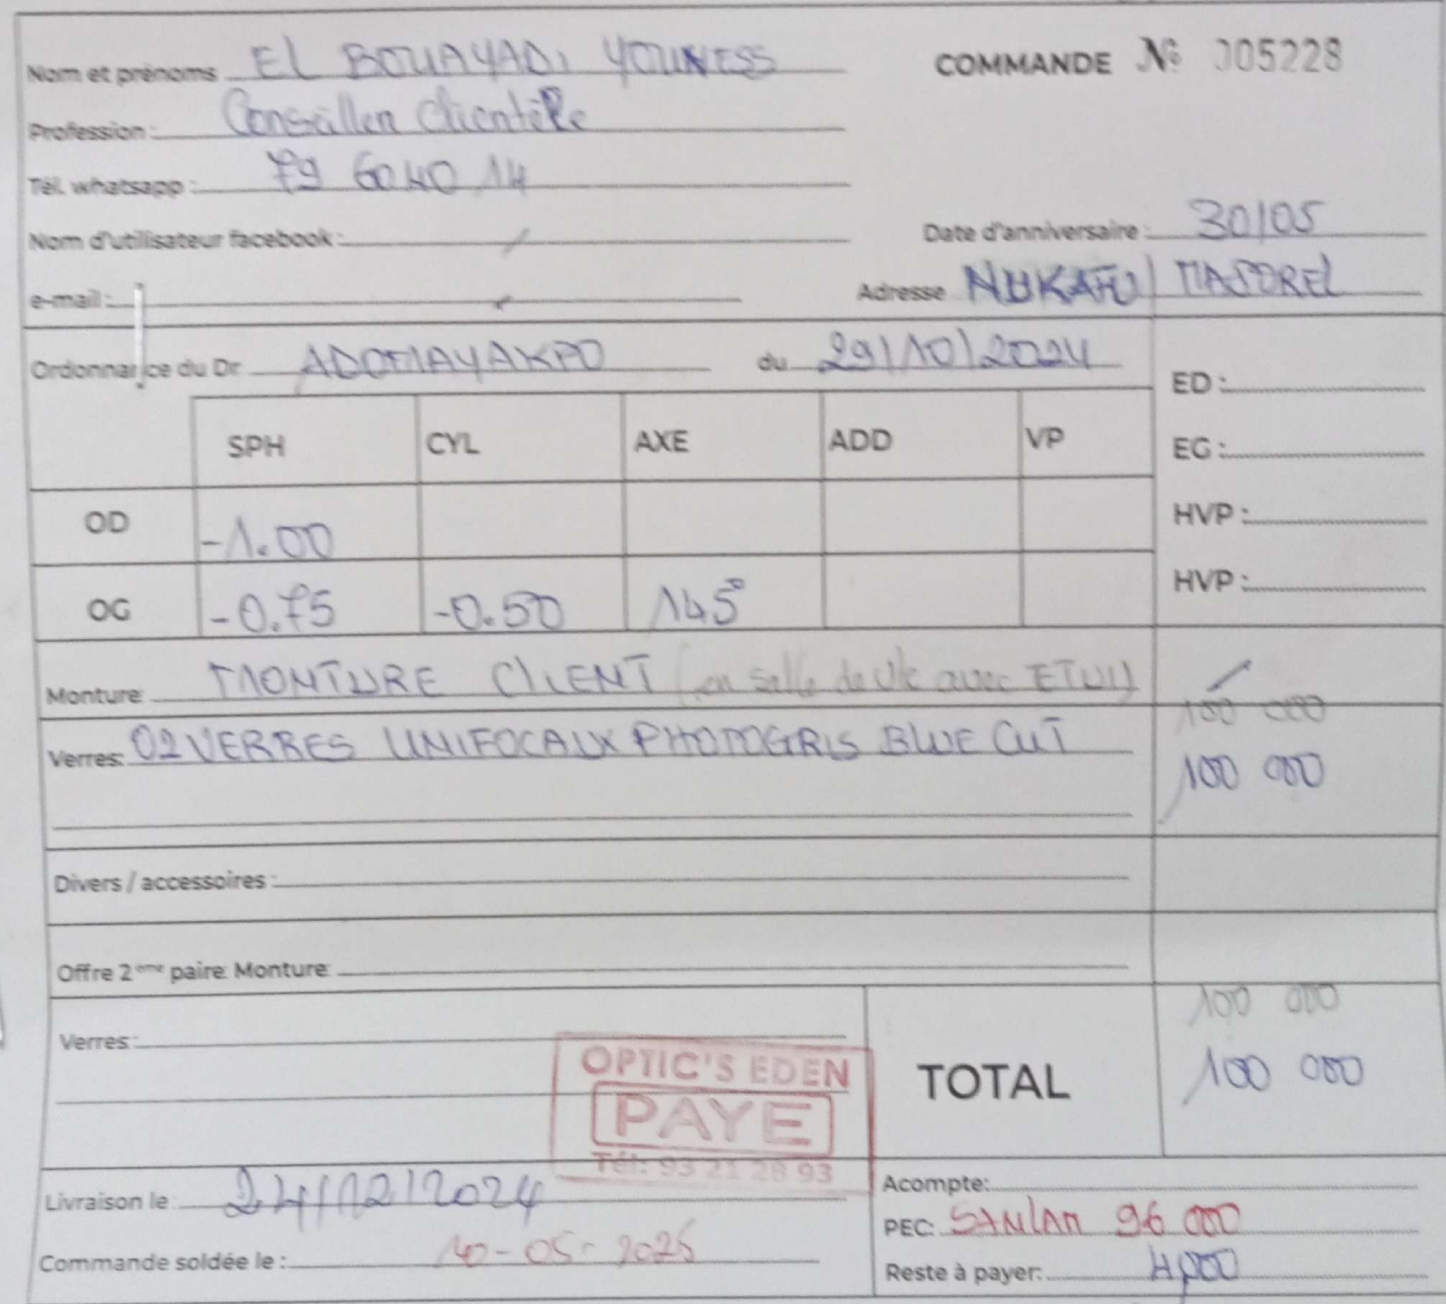 Nom et prénoms EL BOUAYADI YOUNESS
COMMANDE № 005228
Profession : Conseiller Clientèle
Tél. whatsapp : 79 60 40 14
Nom d'utilisateur facebook :
Date d'anniversaire : 30/05
e-mail :
Adresse NUKAFU / MAJOREL
Ordonnance du Dr ADOMAYAKPO du 29/10/2024
ED :
SPH CYL AXE ADD VP
EG :
OD -1.00
HVP :
OG -0.75 -0.50 145°
HVP :
Monture MONTURE CLIENT (en salle de vte avec ETUI)
100 000
Verres: 02 VERRES UNIFOCAUX PHOTOGRIS BLUE CUT
100 000
Divers / accessoires :
Offre 2ème paire: Monture:
100 000
Verres:
OPTIC'S EDEN
PAYE
Tél: 93 21 28 93
TOTAL 100 000
Livraison le 24/12/2024
Acompte:
PEC: SANLAM 96 000
Commande soldée le : 10-05-2025
Reste à payer: 4,000